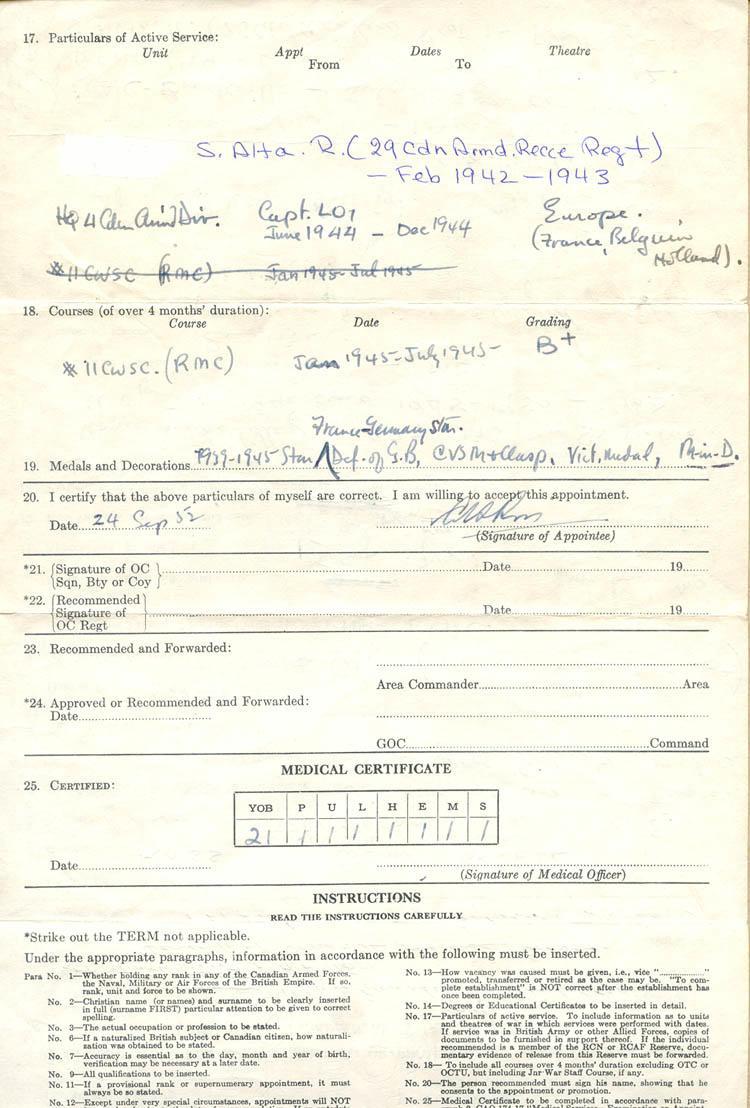 17. Particulars of Active Service:
Unit Appt Dates Theatre
From To
S. Alta. R. (29 Cdn Armd. Recce Regt)
– Feb 1942 – 1943
HQ 4 Cdn Armd Div. Capt. LO1 Europe.
June 1944 – Dec 1944 (France, Belguim
Holland).
#11 CWSC (RMC) Jan 1945 – Jul 1945
18. Courses (of over 4 months' duration):
Course Date Grading
#11 CWSC. (RMC) Jan 1945 – July 1945 B+
France-Germany Star.
19. Medals and Decorations 1939-1945 Star / Def. of G.B, CVSM + Clasp, Vict. Medal, M-in-D.
20. I certify that the above particulars of myself are correct. I am willing to accept this appointment.
Date 24 Sep 52
(Signature of Appointee)
*21. {Signature of OC Date 19
Sqn, Bty or Coy}
*22. {Recommended Date 19
Signature of
OC Regt}
23. Recommended and Forwarded:
Area Commander Area
*24. Approved or Recommended and Forwarded:
Date
GOC Command
MEDICAL CERTIFICATE
25. CERTIFIED:
YOB P U L H E M S
21 1 1 1 1 1 1 1
Date
(Signature of Medical Officer)
INSTRUCTIONS
READ THE INSTRUCTIONS CAREFULLY
*Strike out the TERM not applicable.
Under the appropriate paragraphs, information in accordance with the following must be inserted.
Para No. 1—Whether holding any rank in any of the Canadian Armed Forces,
the Naval, Military or Air Forces of the British Empire. If so,
rank, unit and force to be shown.
No. 2—Christian name (or names) and surname to be clearly inserted
in full (surname FIRST) particular attention to be given to correct
spelling.
No. 3—The actual occupation or profession to be stated.
No. 6—If a naturalized British subject or Canadian citizen, how naturali-
zation was obtained to be stated.
No. 7—Accuracy is essential as to the day, month and year of birth,
verification may be necessary at a later date.
No. 9—All qualifications to be inserted.
No. 11—If a provisional rank or supernumery appointment, it must
always be so stated.
No. 12—Except under very special circumstances, appointments will NOT
No. 13—How vacancy was caused must be given, i.e., vice "............"
promoted, transferred or retired as the case may be. "To com-
plete establishment" is NOT correct after the establishment has
once been completed.
No. 14—Degrees or Educational Certificates to be inserted in detail.
No. 17—Particulars of active service. To include information as to units
and theatres of war in which services were performed with dates.
If service was in British Army or other Allied Forces, copies of
documents to be furnished in support thereof. If the individual
recommended is a member of the RCN or RCAF Reserve, docu-
mentary evidence of release from this Reserve must be forwarded.
No. 18—To include all courses over 4 months' duration excluding OTC or
OCTU, but including Jnr War Staff Course, if any.
No. 20—The person recommended must sign his name, showing that he
consents to the appointment or promotion.
No. 25—Medical Certificate to be completed in accordance with para-